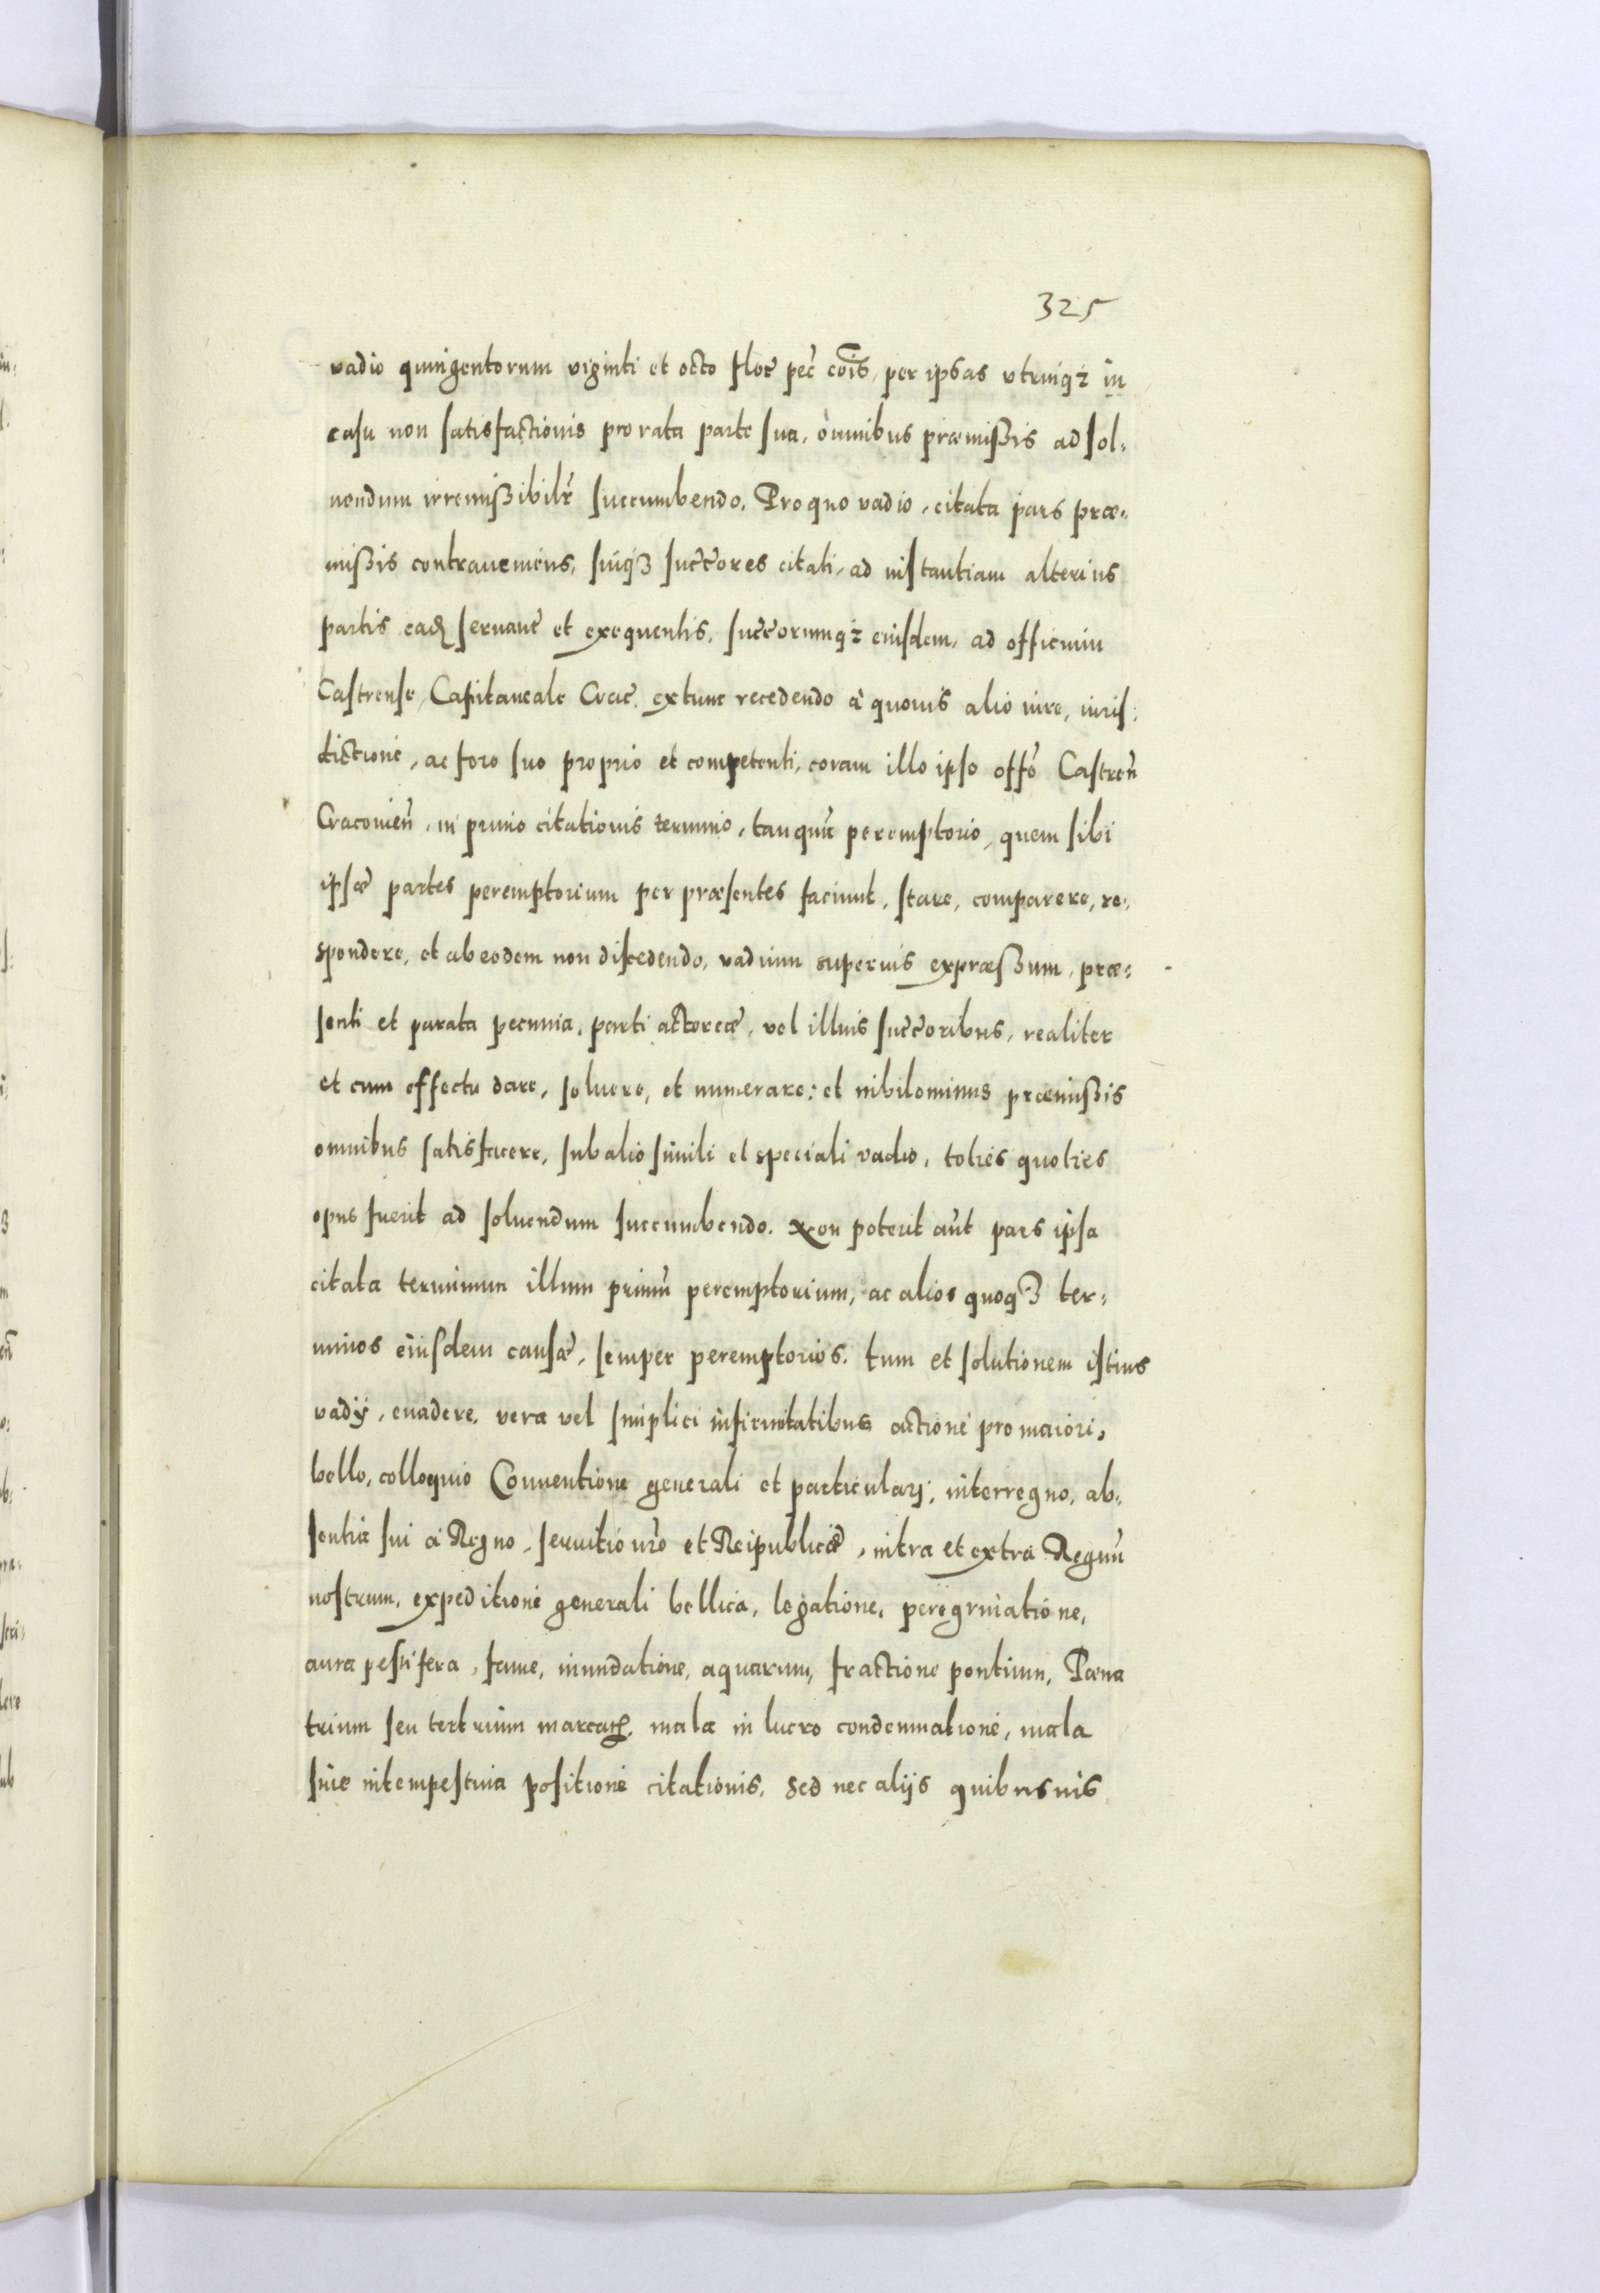 325
vadio quingentorum viginti et octo floĉ peĉ cõis, per ipsas vtrinq3 in
casu non satisfactionis pro rata parte sua, omnibus præmissis ad sol-
uendum irremissibilr̃ succumbendo. Pro quo vadio, citata pars præ-
missis contraueniens, suiq3 succ̃ores citati, ad instantiam alterius
partis ead seruanc̃ et exequentis, succ̃orumq3 eiusdem, ad officium
Castrense, Capitaneale Crac̃. extunc recedendo à quouis alio iure, iuris-
dictione, ac foro suo proprio et competenti, coram illo ipso offõ Castreñ
Cracouieñ, in primo citationis termino, tanquã peremptorio, quem sibi
ipsæ partes peremptorium per præsentes faciunt, stare, comparere, re-
spondere, et ab eodem non discedendo, vadium superius expræssum, præ-
senti et parata pecunia, parti actoreæ, vel illius succ̃oribus, realiter
et cum effectu dare, soluere, et numerare: et nihilominus præmissis
omnibus satisfacere, sub alio simili et speciali vadio, toties quoties
opus fuerit ad soluendum succumbendo. Non poterit aũt pars ipsa
citata terminum illum primũ peremptorium, ac alios quoq3 ter-
minos eiusdem causæ, semper peremptorios. tum et solutionem istius
vadÿ, euadere, vera vel simplici infirmitatibus actione pro maiori,
bello, colloquio Conuentione generali et particulari, interregno, ab-
sentia sui à Regno, seruitio ñro et Reipublicæ, intra et extra Regnũ
nostrum, expeditione generali bellica, legatione, peregrinatione,
aura pestifera, fame, inundatione, aquarum, fractione pontium, Pæna
trium seu tertrium marcarꝝ, mala in lucro condemnatione, mala
siue intempestiua positione citationis. Sed nec alijs quibusuis